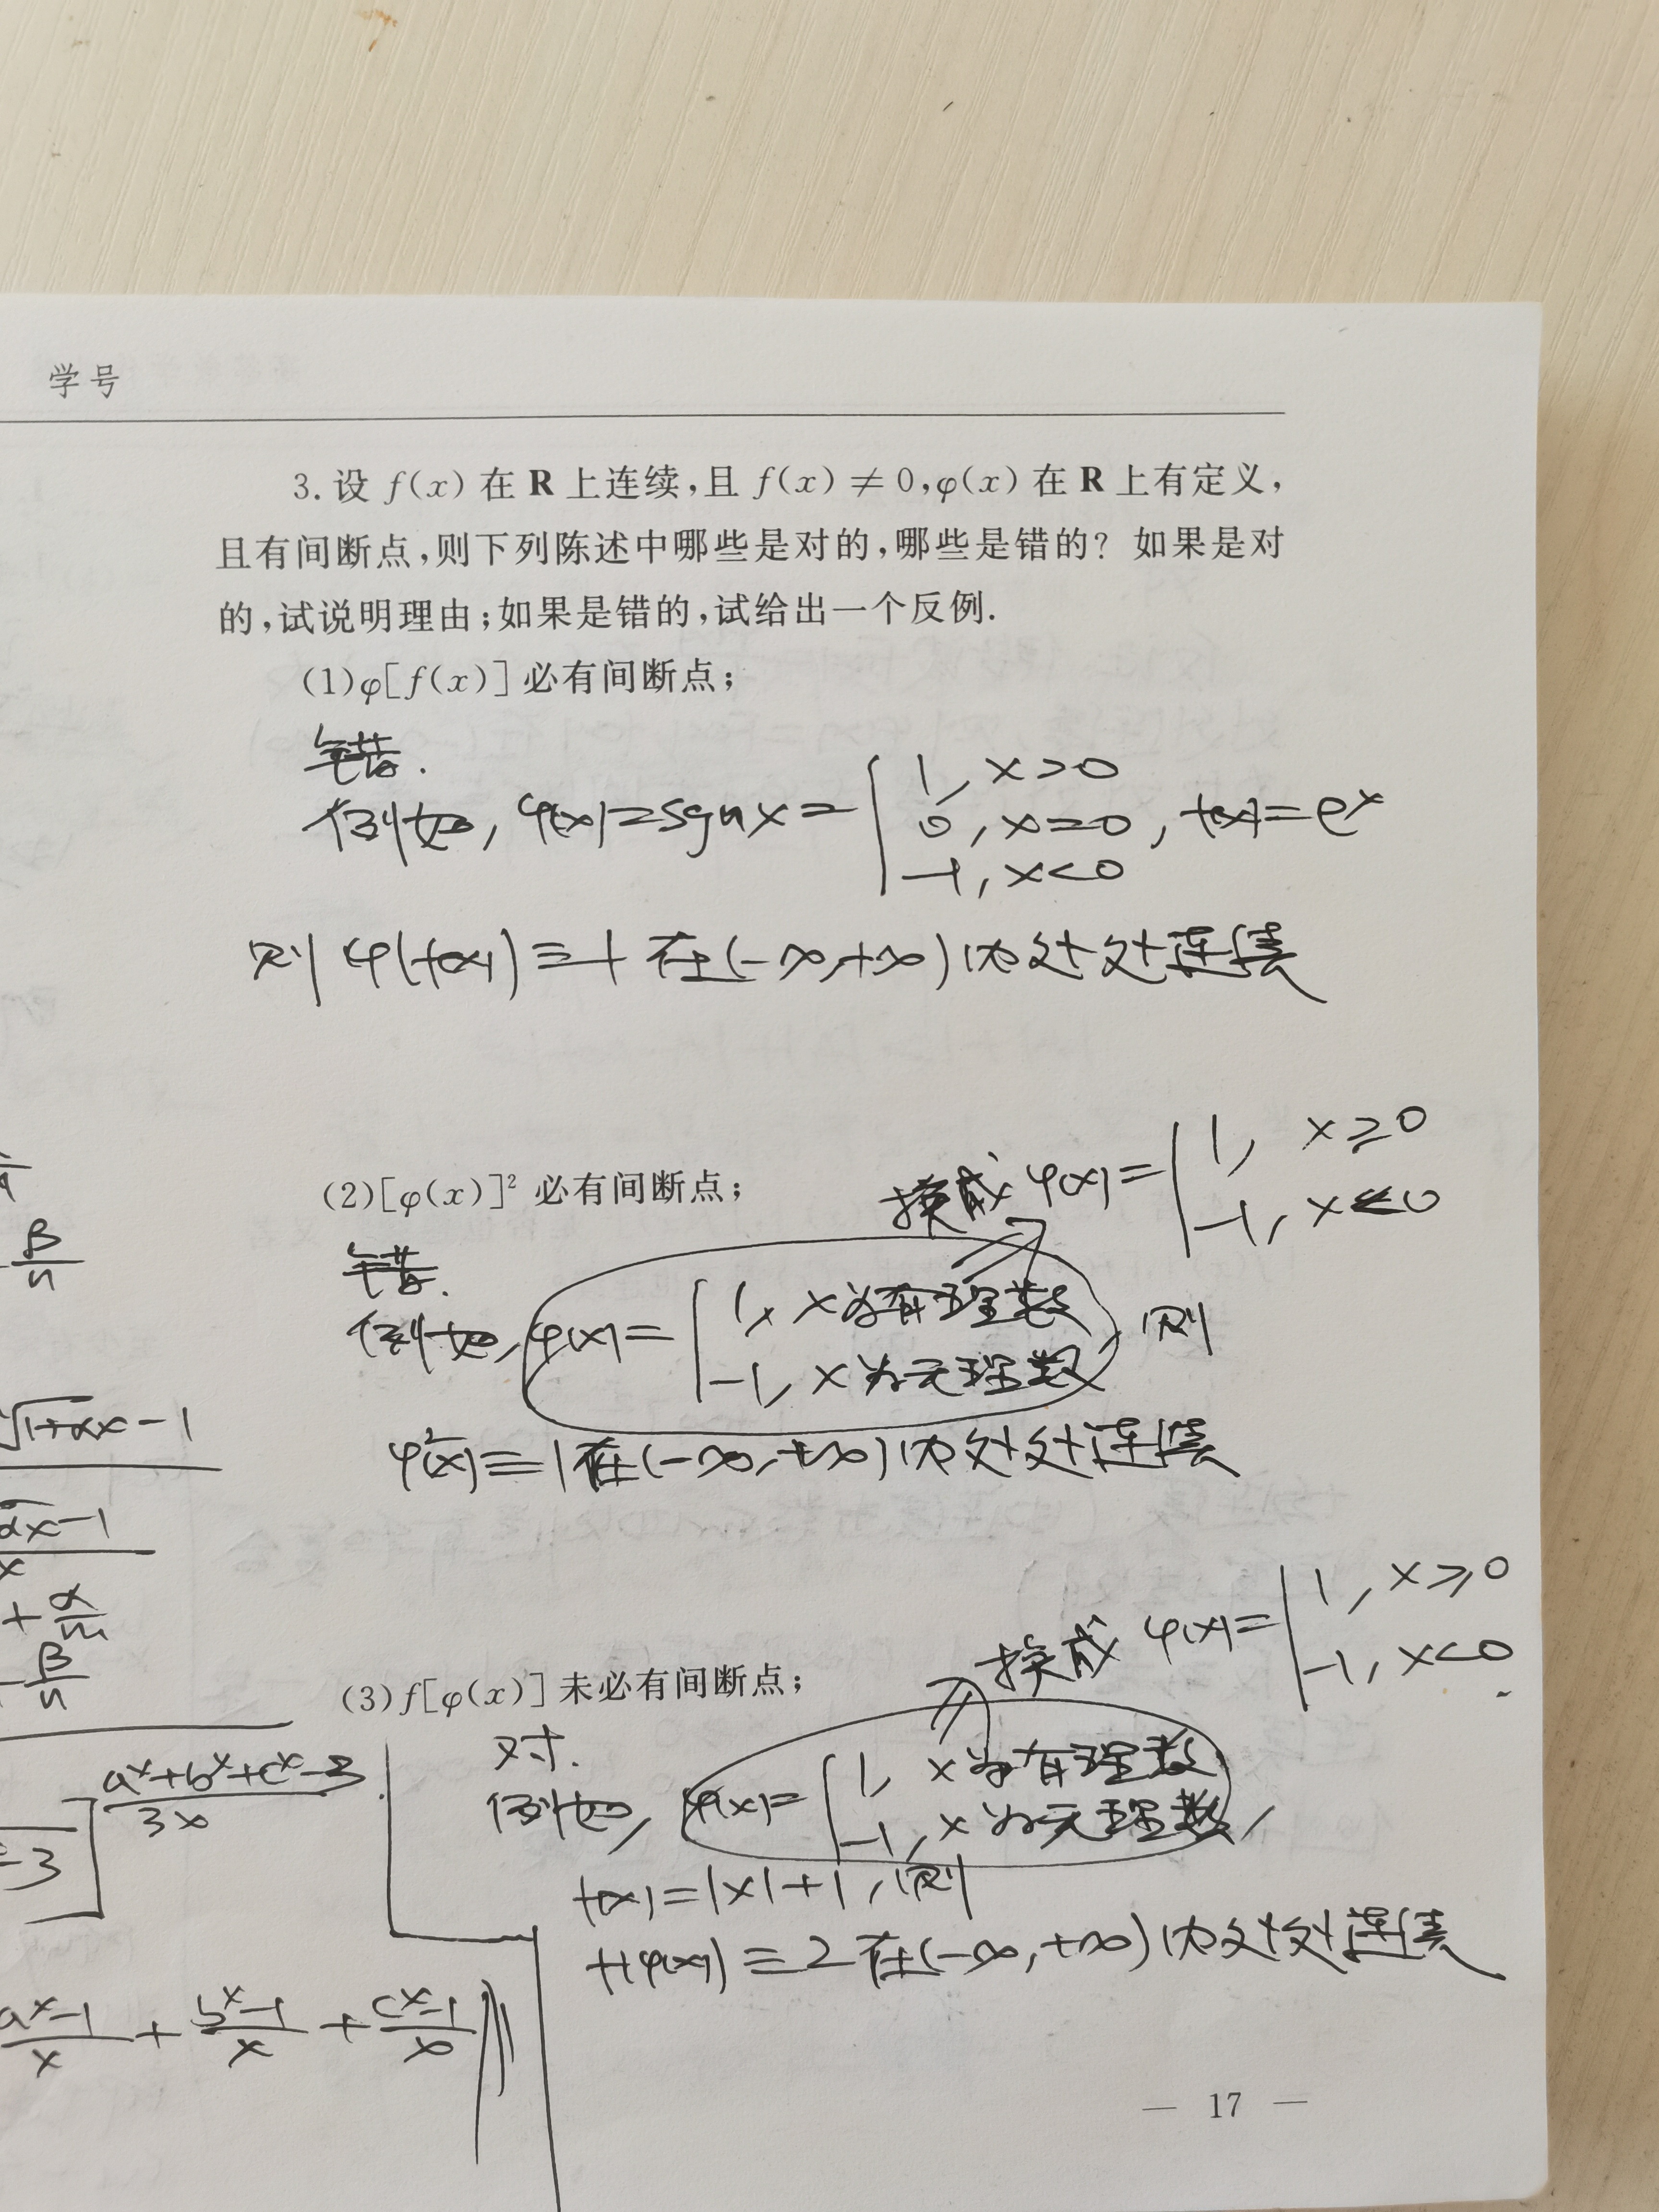 学号
3. 设 f(x) 在 R 上连续,且 f(x) ≠ 0,φ(x) 在 R 上有定义,
且有间断点,则下列陈述中哪些是对的,哪些是错的? 如果是对
的,试说明理由;如果是错的,试给出一个反例.
(1)φ[f(x)] 必有间断点;
错.
例如, φ(x)=sgn x = { 1, x>0
0, x=0 , f(x)=e^x
-1, x<0
则 φ(f(x)) ≡ 1 在(-∞,+∞)内处处连续
(2)[φ(x)]² 必有间断点;
换成 φ(x)= { 1, x≥0
-1, x<0
错.
例如, φ(x)= { 1, x为有理数
-1, x为无理数 , 则
φ²(x) ≡ 1 在(-∞,+∞)内处处连续
(3)f[φ(x)] 未必有间断点;
换成 φ(x)= { 1, x≥0
-1, x<0
对.
例如, φ(x)= { 1, x为有理数
-1, x为无理数 ,
f(x)=|x|+1, 则
f(φ(x)) ≡ 2 在(-∞,+∞)内处处连续
β/n
√1+αx -1
αx -1
x
+ α/m
β/n
a^x+b^x+c^x-3
3x
-3
a^x-1/x + b^x-1/x + c^x-1/x
— 17 —